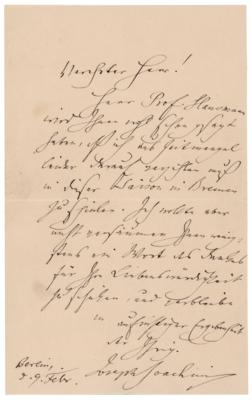 Verehrter Herr!
Herr Prof. Hausmann
wird Ihnen wohl schon gesagt
haben, daß ich aus Zeitmangel
leider darauf verzichten muß
in dieser Saison in Bremen
zu spielen. Ich wollte aber
nicht versäumen Ihnen wenig-
stens ein Wort des Dankes
für Ihre Liebenswürdigkeit
zu schreiben, und verbleibe
in aufrichtiger Ergebenheit
der Ihrige
Joseph Joachim
Berlin,
d. 9. Febr.